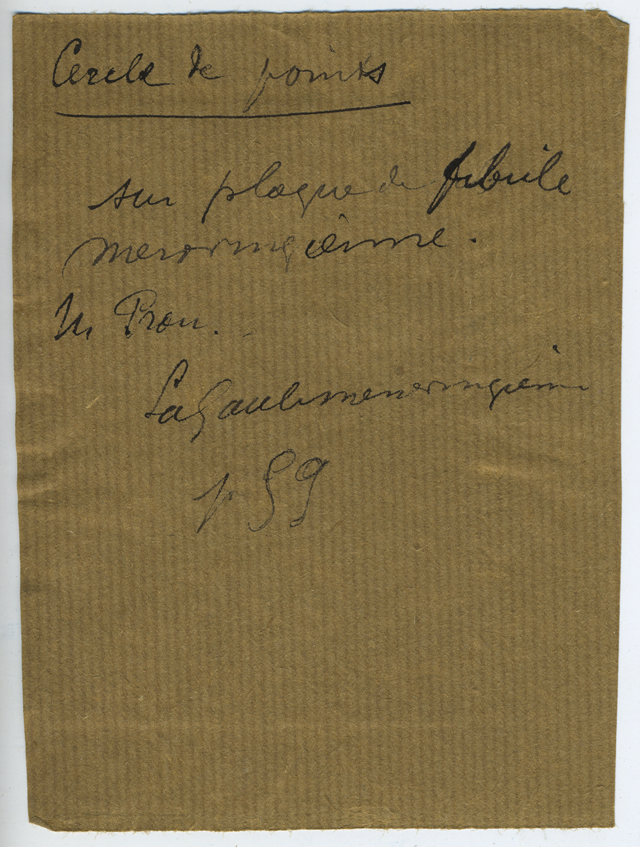 Cercle de points
sur plaque de fibule
merovingienne.
M Prou.
La Gaule merovingienne
p 59